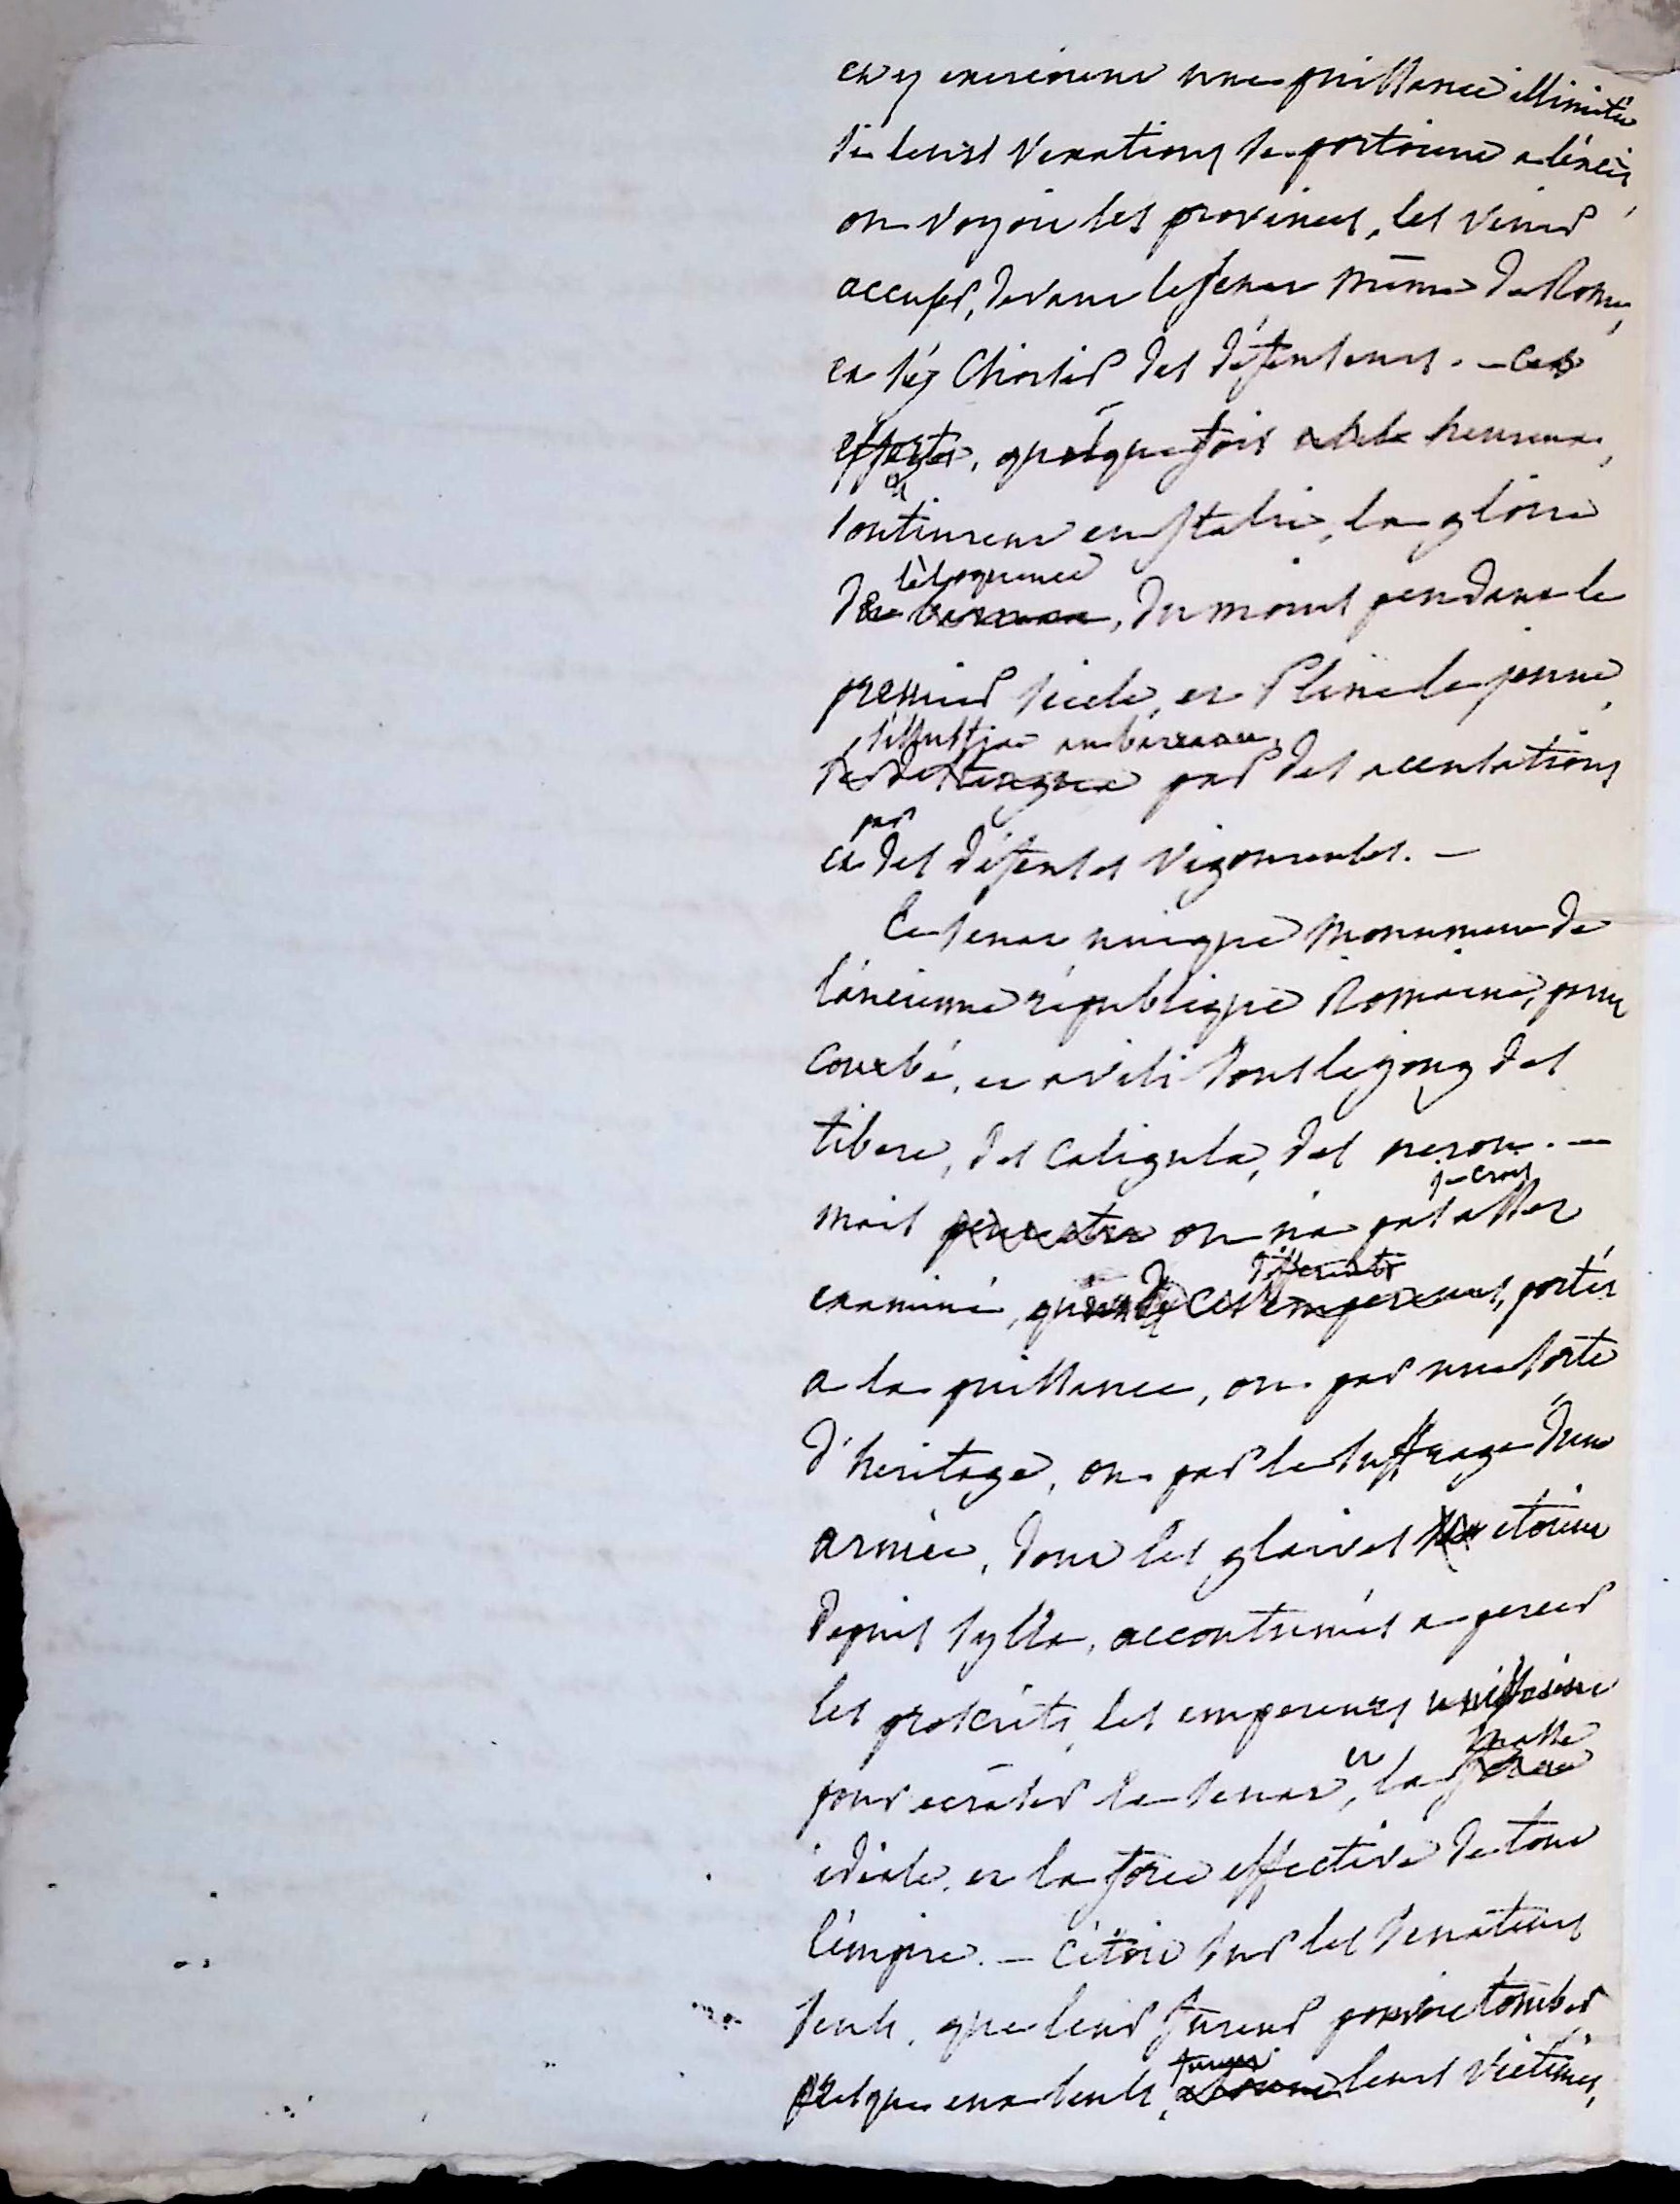 et y exercoient une puissance illimitée
si leurs vexations se portoient a l'excès,
on voyoit les provinces, les venir
accuser, devant le senat même de Rome,
et s'y choisir des défenseurs. — Ces
efforts, quelquefois heureux,
soutinrent en Italie, la gloire
de l'éloquence, du moins pendant le
premier siecle, et Pline le jeune,
s'illustra au barreau par des accusations
et par des défenses vigoureuses. —
Ce senat unique monument de
l'ancienne république Romaine, parut
courbé, et avili sous le joug des
tibere, des Caligula, des neron. —
mais peut etre on n'a pas je crois assez
examiné, que ces empereurs, portés
a la puissance, ou par une sorte
d'heritage, ou par le suffrage d'une
armée, dont les glaives etoient
depuis sylla, accoutumés a percer
les proscrits, les empereurs unissoient
pour ecraser le senat, et la masse
idéale, et la force effective de tout
l'empire. — C'étoit sur les senateurs
seuls, que leur fureur pouvoit tomber
presque eux seuls, furent leurs victimes,